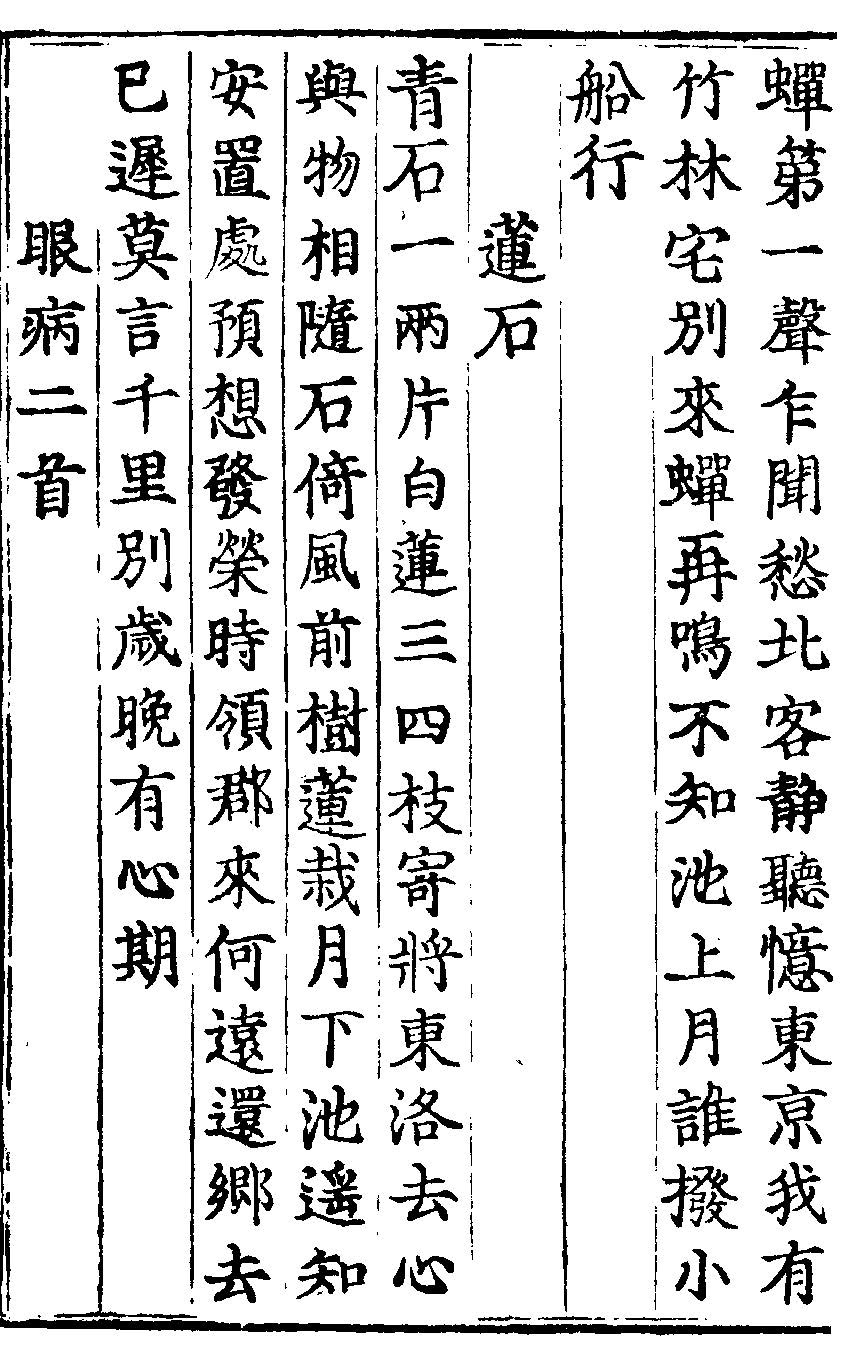 蟬第一聲乍聞愁北客靜聽憶東京我有
竹林宅別來蟬再鳴不知池上月誰撥小
船行
蓮石
青石一兩片白蓮三四枝寄將東洛去心
與物相隨石倚風前樹蓮栽月下池遥知
安置處預想發榮時領郡來何遠還鄉去
已遲莫言千里別歲晚有心期
眼病二首